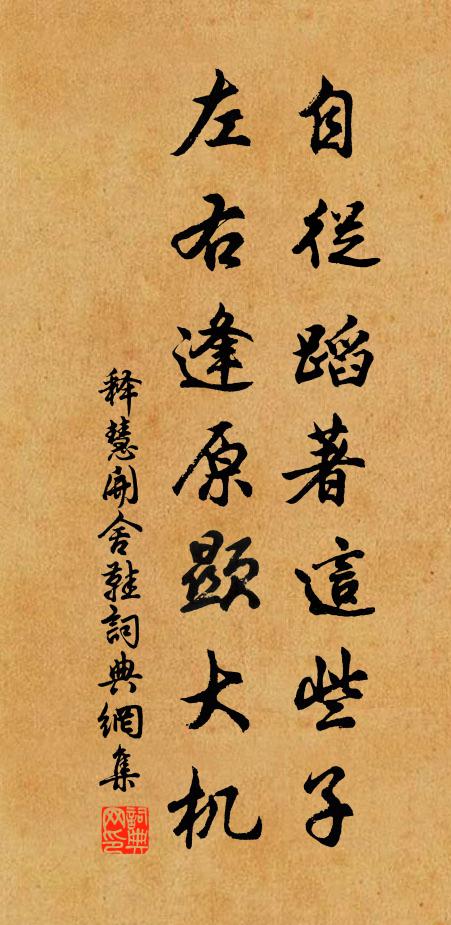 自從蹈著這些子
左右逢原顯大机
释慧開舍鞋詞典網集
詞典网印